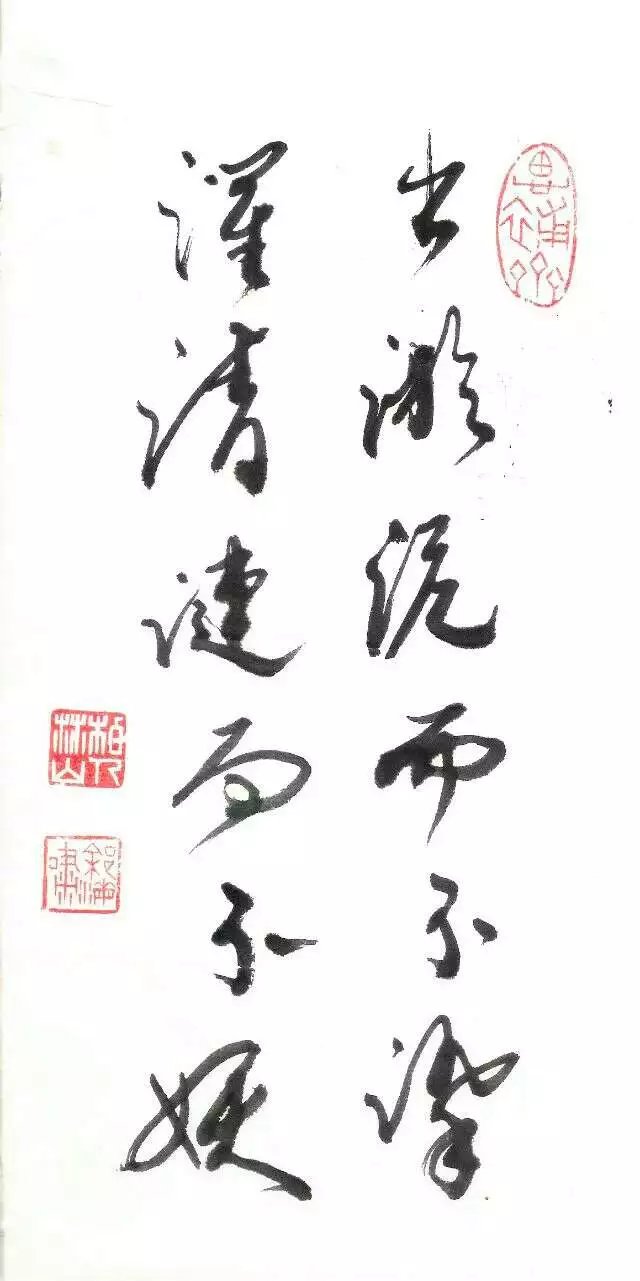 出淤泥而不染
濯清漣而不妖